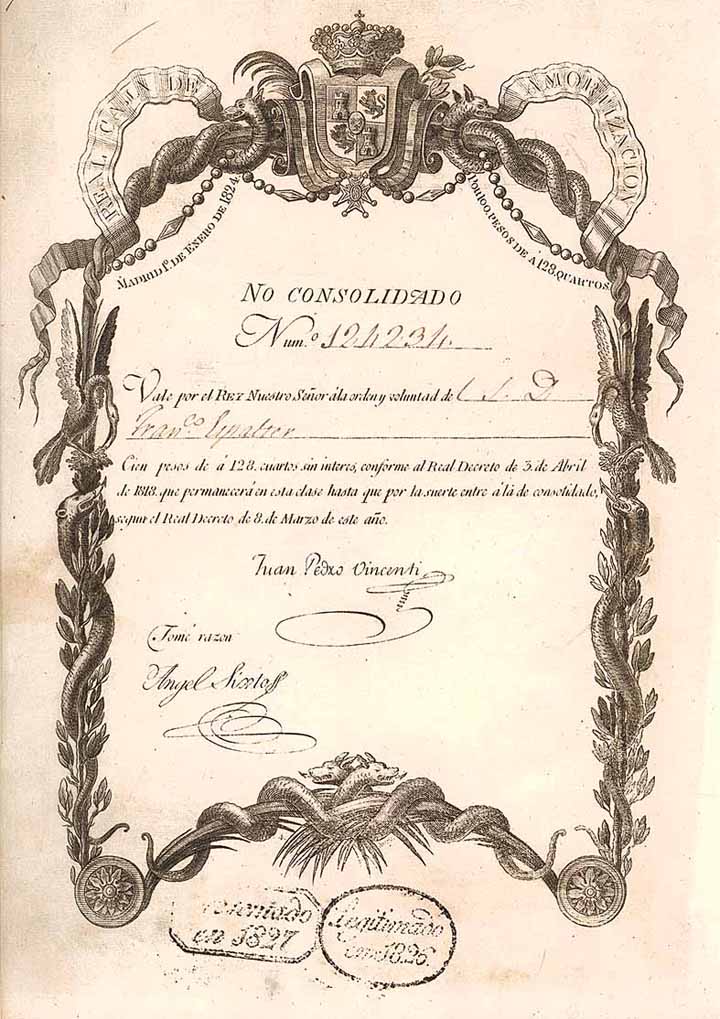 REAL CAJA DE
AMORTIZACION
MADRID 1º. DE ENERO DE 1824.
Por 100. PESOS DE A 128. QUARTOS
NO CONSOLIDADO
Num.º 124234.
Vale por el REY Nuestro Señor á la orden y voluntad de
Fran.co
Cien pesos de á 128. cuartos sin interes, conforme al Real Decreto de 3. de Abril
de 1818. que permanecerá en esta clase hasta que por la suerte entre á la de consolidado,
segun el Real Decreto de 8. de Marzo de este año.
Juan Pedro Vincenti
Tomé razon
Angel
en 1827
Legitimado
en 1826.